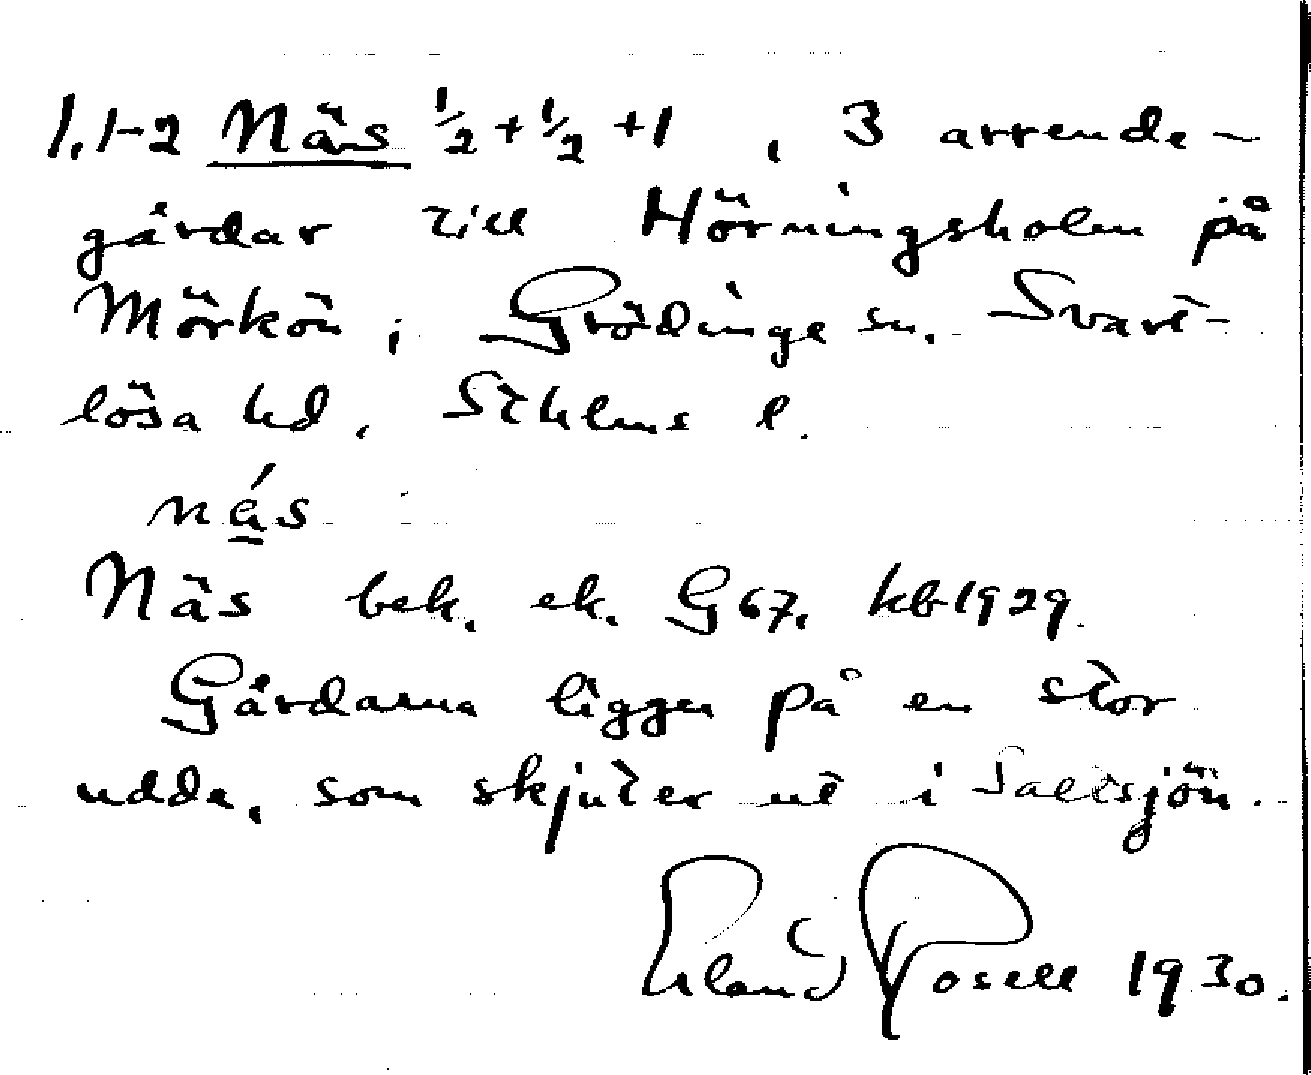 1,1-2 Näs ½ + ½ + 1, 3 arrende-
gårdar till Hörningsholm på
Mörkön i Grödinge sn. Svart-
lösa hd. Sthlms l.
nä́s
Näs bek. ek. G 67, kb 1929.
Gårdarna ligger på en stor
udde, som skjuter ut i Saltsjön.
Erland Rosell 1930.